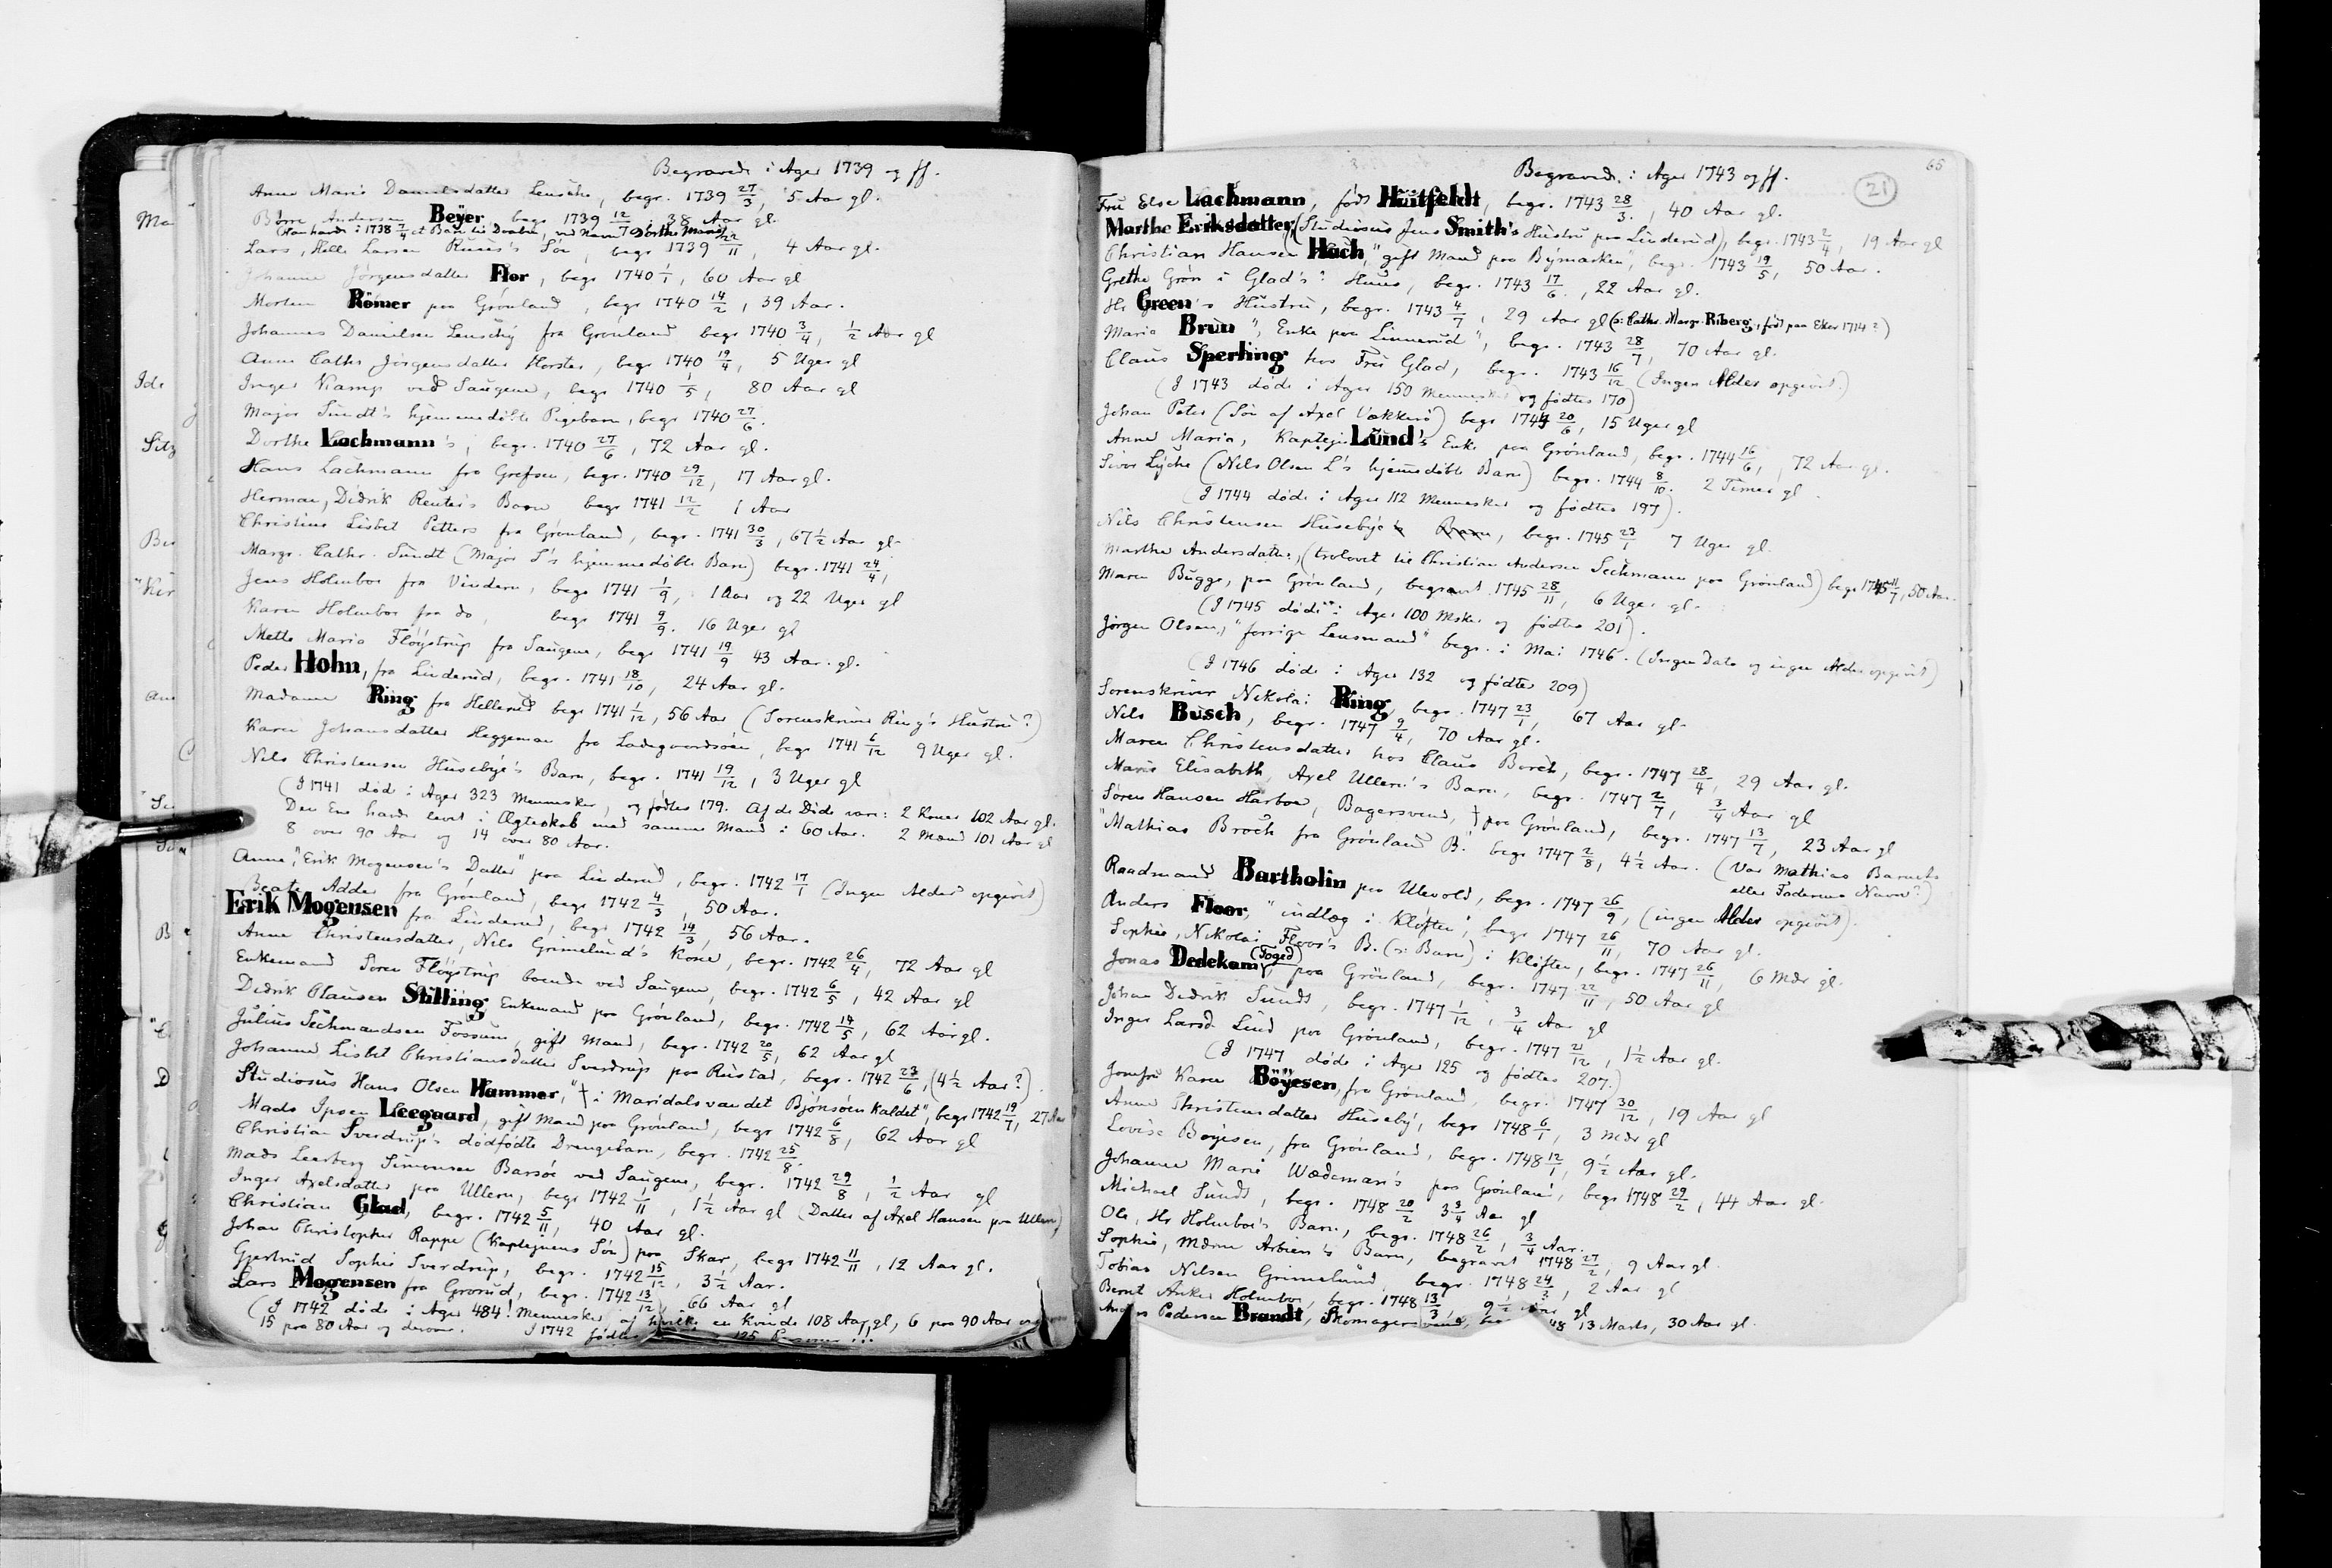 Begravede i Ager 1739 og ff.
Anne Marie Danielsdatter Leuschs, begr. 1739 27/3, 5 Aar gl.
Børre Andersen Beyer, begr. 1739 12/2, 38 Aar gl.
(Han havde i 1738 7/4 et Barn til Daaben, ved Navn Dorthe Marie)
Lars, Helle Larsen Ruus's Søn, begr 1739 22/11, 4 Aar gl.
Johanne Jørgensdatter Flor, begr 1740 1/1, 60 Aar gl
Morten Römer paa Grønland, begr 1740 14/2, 39 Aar.
Johannes Danielsen Leuschy fra Grønland begr 1740 3/4, 1/2 Aar gl
Anne Cathr Jørgensdatter Horster, begr 1740 19/4, 5 Uger gl
Inger Kamp ved Saugene, begr 1740 1/5, 80 Aar gl
Major Sundt's hjemmedøbte Pigebarn, begr 1740 27/6.
Dorthe Lachmann's, begr. 1740 27/6, 72 Aar gl.
Hans Lachmann fra Grefsen, begr. 1740 29/12, 17 Aar gl.
Herman, Didrik Reuter's Barn begr 1741 12/2 1 Aar
Christine Lisbet Petters fra Grønland, begr. 1741 30/3, 67 1/2 Aar gl.
Margr. Cathr. Sundt (Major S's hjemmedøbte Barn) begr. 1741 24/4,
Jens Holmboe fra Vindern, begr 1741 1/9, 1 Aar og 22 Uger gl
Karen Holmboe fra do, begr 1741 9/9. 16 Uger gl
Mette Maria Fløystrup fra Saugene, begr 1741 19/9 43 Aar. gl.
Peder Holm, fra Linderud, begr. 1741 18/10, 24 Aar gl.
Madame Ring fra Hellerud begr 1741 1/12, 56 Aar (Sorenskriver Ring's Hustru?)
Karen Johansdatter Heggeman fra Ladegaardsøen, begr 1741 6/12 9 Uger gl.
Nils Christensen Husebye's Barn, begr. 1741 19/12, 3 Uger gl
(I 1741 døde i Ager 323 Mennesker, og fødtes 179. Af de Døde vare: 2 Koner 102 Aar gl.
Den Ene havde levet i Ægteskab med samme Mand i 60 Aar. 2 Mænd 101 Aar gl
8 over 90 Aar og 14 over 80 Aar.
Anne, "Erik Mogensen's Datter" paa Linderud, begr. 1742 17/1 (Ingen Alder opgivet)
Beate Adder fra Grønland, begr 1742 4/3, 50 Aar.
Erik Mogensen fra Linderud, begr 1742 14/3, 56 Aar.
Anne Christensdatter, Nils Grimelund's Kone, begr. 1742 26/4, 72 Aar gl
Enkemand Søren Fløystrup boende ved Saugene, begr. 1742 6/5, 42 Aar gl
Didrik Clausen Stilling, Enkemand paa Grønland, begr. 1742 14/5, 62 Aar gl.
Julius Sechmandsen Fossum, gift Mand, begr. 1742 20/5, 62 Aar gl
Johanne Lisbet Christiansdatter Sverdrup paa Rustad, begr. 1742 23/6, (4 1/2 Aar?).
Studiosus Hans Olsen Hammer, "† i Maridalsvandet Bjønsøen kaldet", begr 1742 19/7, 27 Aar
Mads Ipsen Leegaard, gift Mand paa Grønland, begr 1742 6/8, 62 Aar gl
Christian Sverdrup's dødfødte Drengebarn, begr. 1742 25/8.
Mads Leerberg Simonsen Barsøe ved Saugene, begr. 1742 29/8, 1/2 Aar gl
Inger Axelsdatter paa Ullern, begr 1742 1/11, 1 1/2 Aar gl (Datter af Axel Hansen paa Ullern)
Christian Glad, begr. 1742 5/11, 40 Aar gl.
Johan Christopher Rappe (Kaptejnens Søn) paa Skar, begr 1742 11/11, 12 Aar gl.
Gjertrud Sophie Sverdrup, begr. 1742 15/12, 3 1/2 Aar.
Lars Mogensen fra Grorud, begr. 1742 13/12, 66 Aar gl
(I 1742 døde i Ager 484! Mennesker, af hvilke en Kvinde 108 Aar gl, 6 paa 90 Aar og
15 paa 80 Aar og derover. I 1742 fødtes 125 !!!
Begravede i Ager 1743 og ff.
21
65
Fru Else Lachmann, født Huitfeldt, begr. 1743 28/3., 40 Aar gl.
Marthe Eriksdatter, (Studiosus Jens Smith's Hustru paa Linderud), begr. 1743 2/4, 19 Aar gl
Christian Hansen Hach, "gift Mand paa Bymarken", begr. 1743 19/5, 50 Aar.
Grethe Grøn i Glad's? Huus, begr. 1743 17/6., 22 Aar gl.
Hr Green's Hustru, begr. 1743 4/7, 29 Aar gl (o: Cathr. Margr. Riberg, født paa Eker 1714?)
Maria Brun, "Enke paa Linnerud", begr. 1743 28/7, 70 Aar gl.
Claus Sperling hos Fru Glad, begr. 1743 16/12 (Ingen Alder opgivet.)
(I 1743 døde i Ager 150 Mennesker og fødtes 170)
Johan Peter (Søn af Axel Vækkerø) begr 1744 20/6, 15 Uger gl
Anne Maria, Kaptejn Lund's Enke paa Grønland, begr. 1744 16/6, 72 Aar gl.
Siver Lyche (Nils Olsen L's hjemmedøbte Barn) begr. 1744 8/10. 2 Timer gl.
(I 1744 døde i Ager 112 Mennesker og fødtes 197).
Nils Christensen Husebye's Barn, begr. 1745 23/1 7 Uger gl.
Marthe Andersdatter, (trolovet til Christian Andersen Sechmann paa Grønland) begr 1745 11/7, 50 Aar.
Maren Bugge, paa Grønland, begravet 1745 28/11, 6 Uger gl.
(I 1745 døde i Ager 100 Msker og fødtes 201).
Jørgen Olsen, "forrige Lensmand" begr. i Mai 1746. (Ingen Dato og ingen Alder opgivet)
(I 1746 døde i Ager 132 og fødtes 209)
Sorenskriver Nikolai Ring, begr. 1747 23/1, 67 Aar gl.
Nils Busch, begr. 1747 9/4, 70 Aar gl.
Maren Christensdatter hos Claus Borch, begr. 1747 28/4, 29 Aar gl.
Marie Elisabeth, Axel Ullern's Barn, begr. 1747 2/7, 3/4 Aar gl
Søren Hansen Harboe, Bagersvend, † paa Grønland, begr. 1747 13/7, 23 Aar gl
"Mathias Broch fra Grønland B." begr 1747 2/8, 4 1/2 Aar. (Var Mathias Barnets
eller Faderens Navn?)
Raadmand Bartholin paa Ulevold, begr. 1747 26/9, (ingen Alder opgivet).
Anders Floor, "indlag i Kløften", begr 1747 26/11, 70 Aar gl.
Sophie, Nikolai Floor's B. (o: Barn) i Kløften, begr. 1747 26/11, 6 Mdr gl.
Jonas Dedekam (Foged), paa Grønland, begr. 1747 22/11, 50 Aar gl
Johan Didrik Sundt, begr. 1747 1/12, 3/4 Aar gl
Inger Larsd. Lind paa Grønland, begr. 1747 21/12, 1 1/2 Aar gl.
(I 1747 døde i Ager 125 og fødtes 207.)
Jomfru Karen Böyesen, fra Grønland, begr. 1747 30/12, 19 Aar gl
Anne Christensdatter Huseby, begr 1748 6/1, 3 Mdr gl
Lovise Bøyesen, fra Grønland, begr. 1748 12/1, 9 1/2 Aar gl.
Johanne Marie Wædeman's paa Grønland, begr 1748 29/2, 44 Aar gl.
Michael Sundt, begr. 1748 20/2 3 3/4 Aar gl
Ole, Hr Holmboe's Barn, begr. 1748 26/2, 3/4 Aar.
Sophie, Mdme Arbien's Barn, begravet 1748 27/2, 9 Aar gl.
Tobias Nilsen Grimelund, begr. 1748 24/3, 2 Aar gl
Bernt Anker Holmboe, begr. 1748 13/3, 9 1/2 Aar gl
Pedersen Brandt, Skomagersvend, 48 13 Marts, 30 Aar gl.